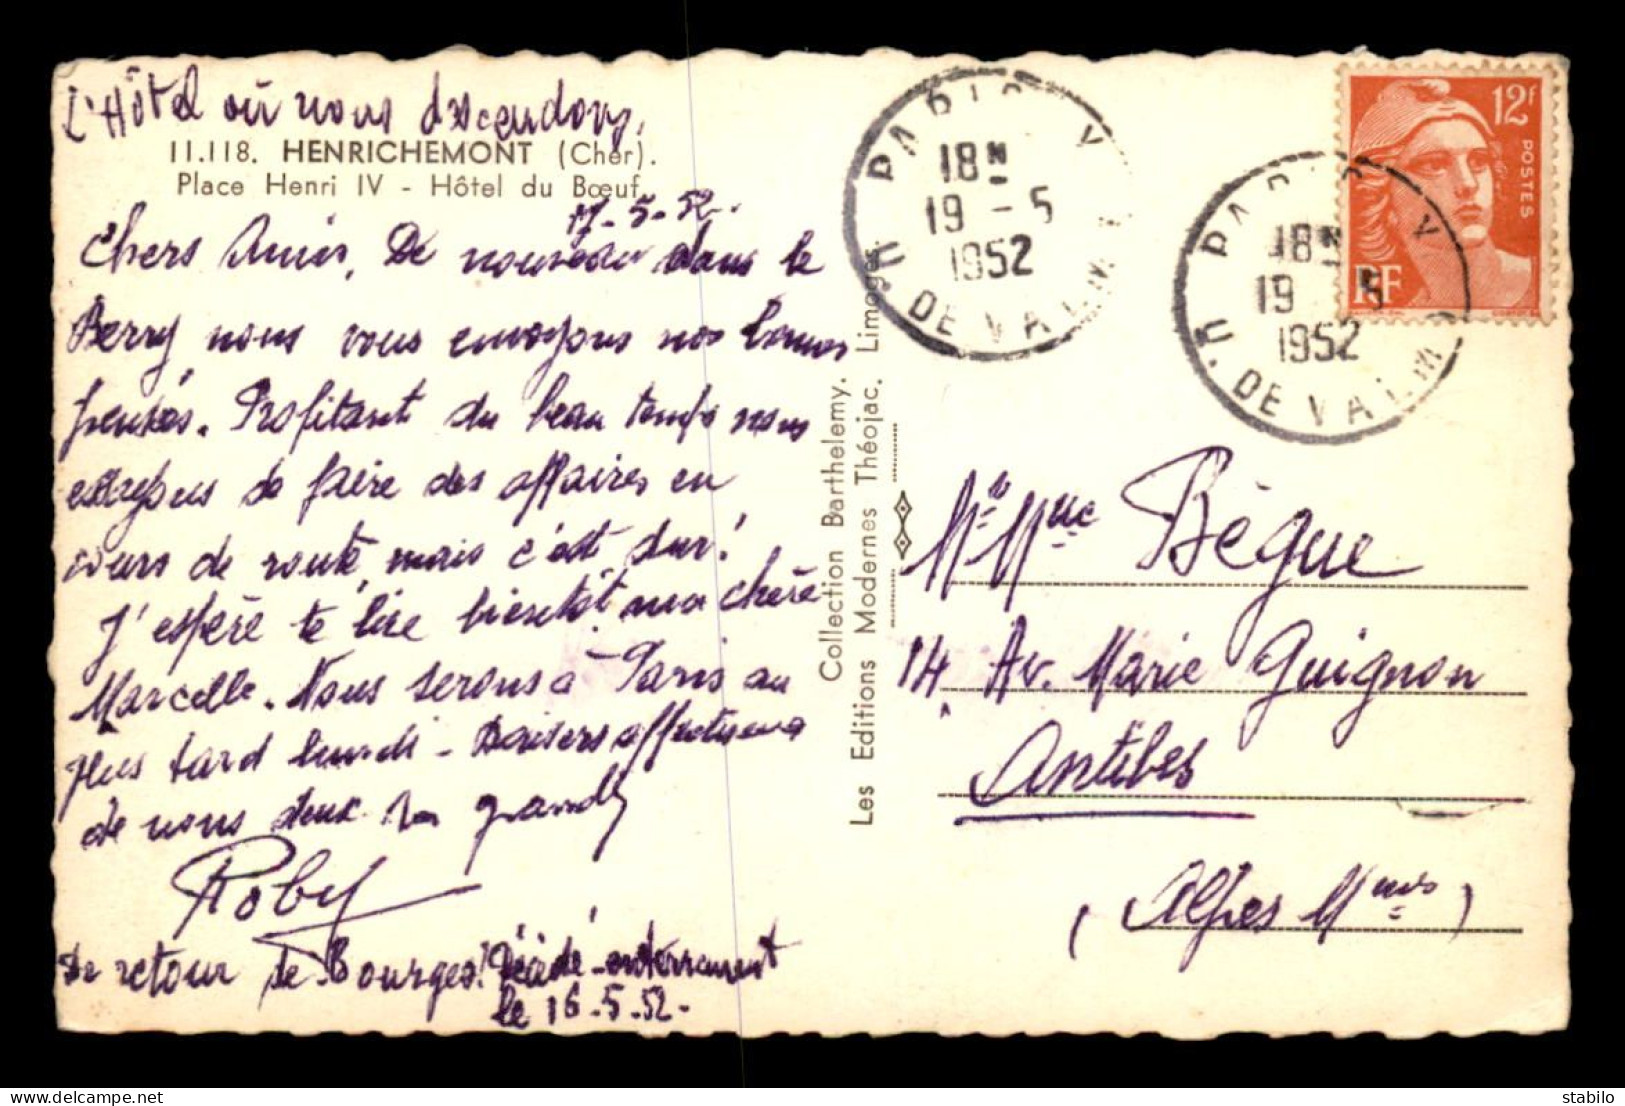 L'Hôtel où nous descendons.
11.118. HENRICHEMONT (Cher).
Place Henri IV - Hôtel du Bœuf.
17-5-52.
Chers Amis, De nouveau dans le
Berry, nous vous envoyons nos bonnes
pensées. Profitant du beau temps nous
essayons de faire des affaires en
cours de route, mais c'est dur!
J'espère te lire bientôt, ma chère
Marcelle. Nous serons à Paris au
plus tard lundi - Baisers affectueux
de nous deux
Roby
De retour de Bourges! enterrement
le 16-5-52-
Collection Barthelemy.
Les Editions Modernes Théojac. Limoges.
PARIS V
18H
19 -5
1952
R. DE VALM
PARIS V
18H
19 5
1952
R. DE VALM
12F
POSTES
RF
Mr Mme Bègue
14, Av. Marie Guignon
Antibes
(Alpes Mmes)
delcampe.net
stabilo